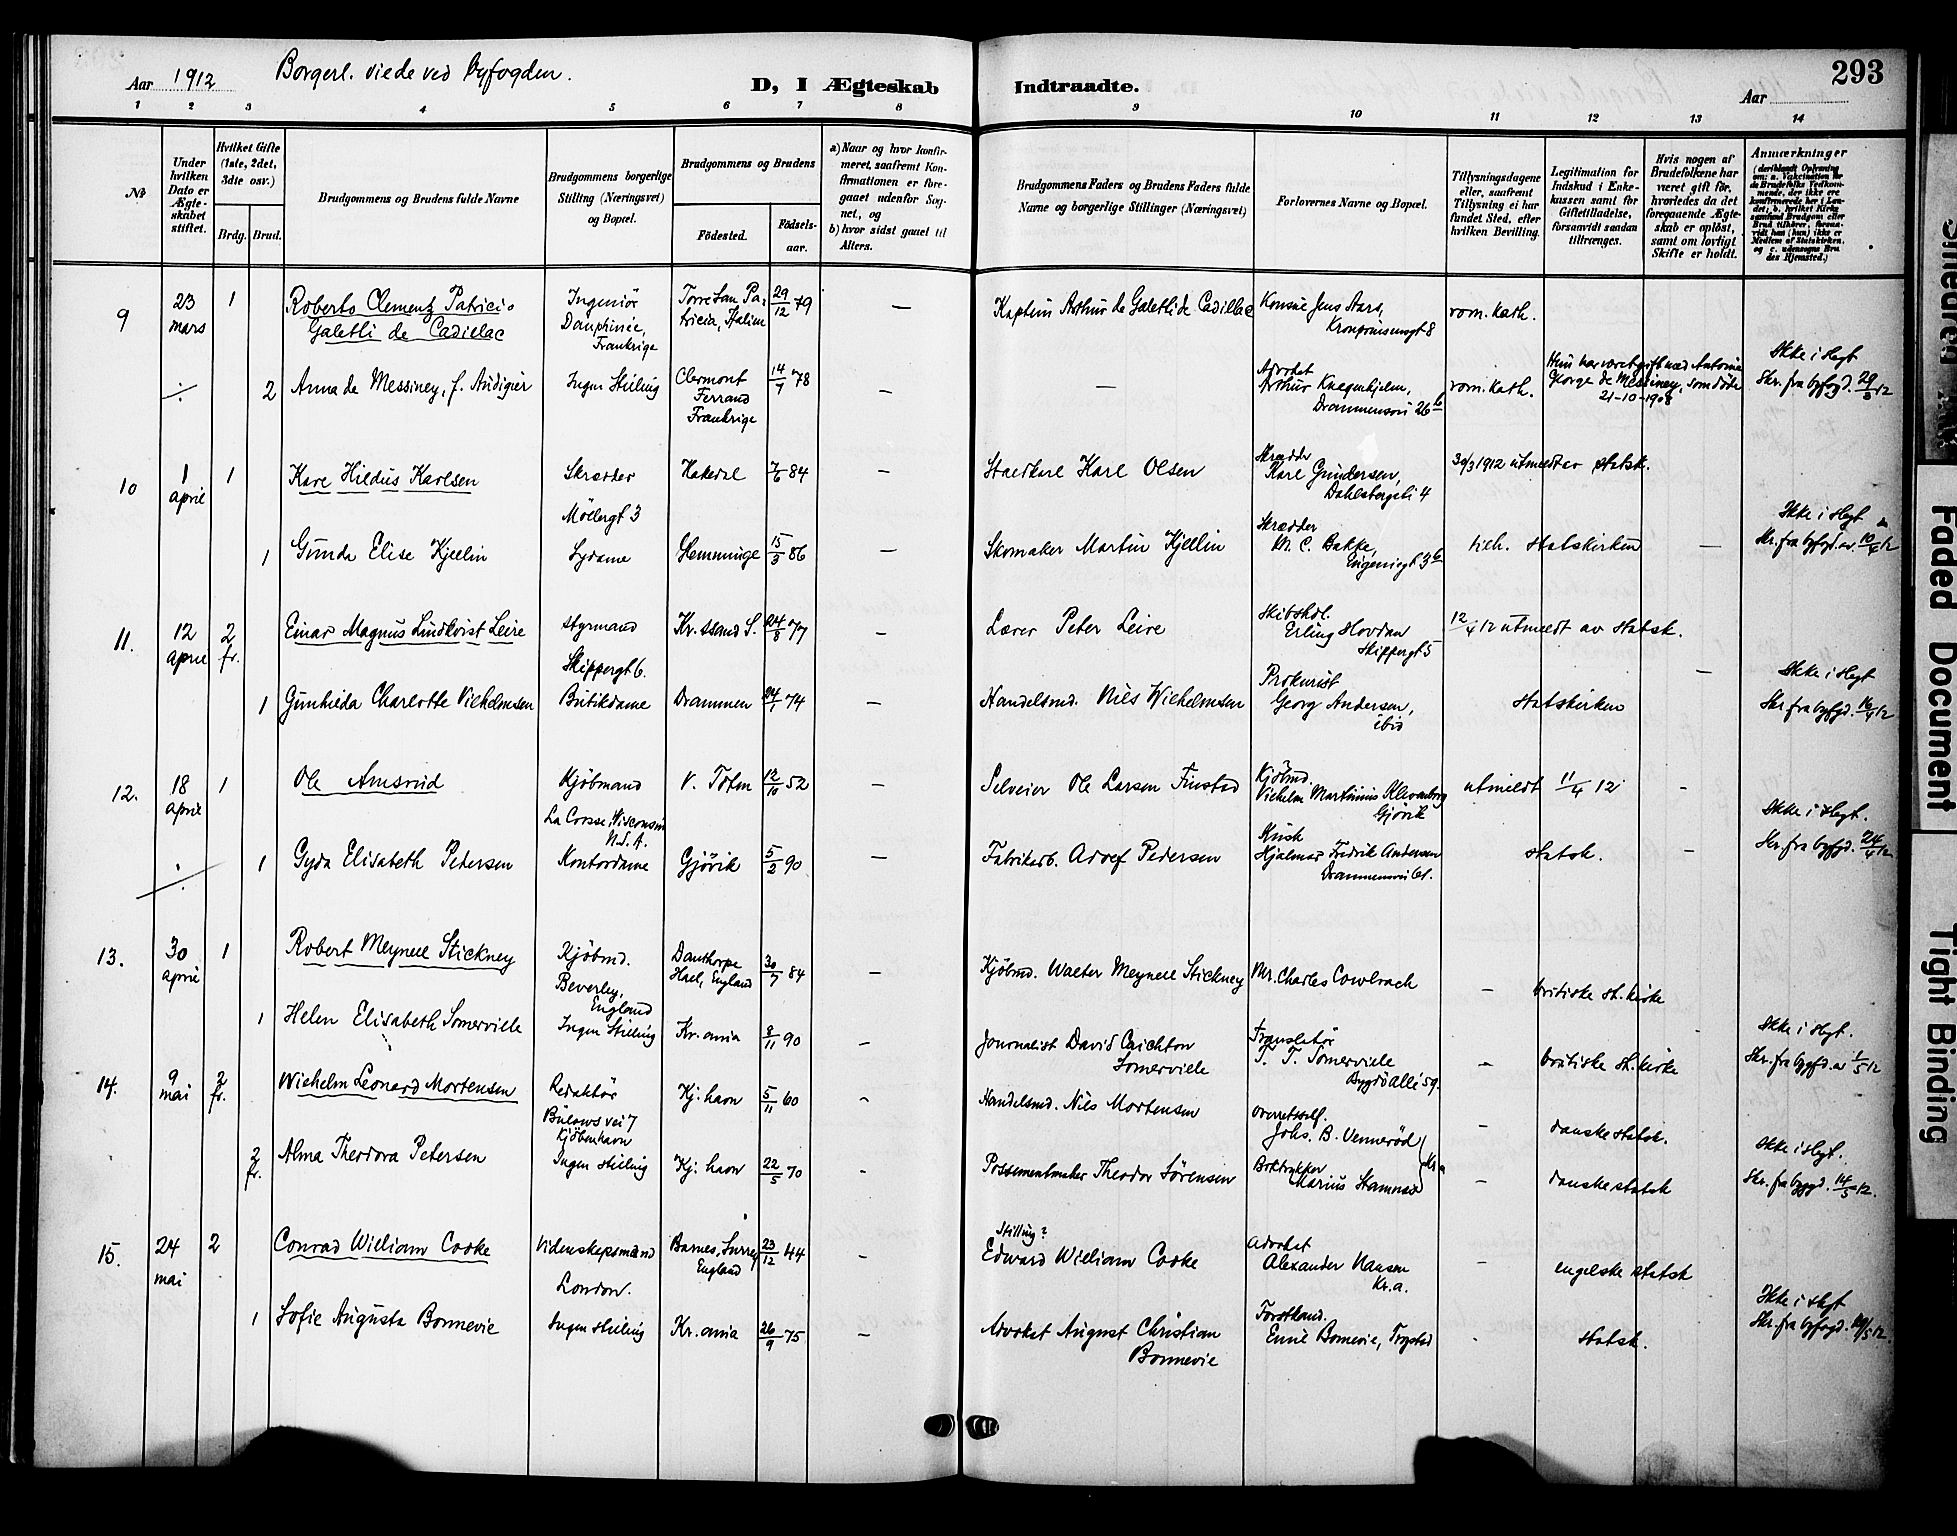 293
Aar 1912 Borgerl. viede ved byfogden. D, I Ægteskab Indtraadte. Aar
1 2 3 4 5 6 7 8 9 10 11 12 13 14
№
Under hvilken Dato er Ægteskabet stiftet.
Hvilket Gifte (1ste, 2det, 3die osv.)
Brdg. Brud.
Brudgommens og Brudens fulde Navne
Brudgommens borgerlige Stilling (Næringsvei) og Bopæl.
Brudgommens og Brudens
Fødested. Fødselsaar.
a) Naar og hvor konfirmeret, saafremt Konfirmationen er foregaaet udenfor Sognet, og
b) hvor sidst gaaet til Alters.
Brudgommens Faders og Brudens Faders fulde Navne og borgerlige Stillinger (Næringsvei)
Forlovernes Navne og Bopæl.
Tillysningsdagene eller, saafremt Tillysning ei har fundet Sted, efter hvilken Bevilling.
Legitimation for Indskud i Enkekassen samt for Giftetilladelse, forsaavidt saadan tiltrænges.
Hvis nogen af Brudefolkene har været gift før, hvorledes da det foregaaende Ægteskab er opløst, samt om lovligt Skifte er holdt.
Anmærkninger
9 23 mars 1 Roberto Clementz Patricio Galetli de Cadillac Ingeniør Dauphinée, Frankrige Torre San Patricia, Italien 29/12 79 — Kaptein Arthur de Galetli de Cadillac Konsul Jens Aars, Kronprinsensgt 8 rom. kath.
2 Anna de Messiney, f. Audigier Ingen Stilling Clermont Ferrand Frankrige 14/7 78 — — Advokat Arthur Knagenhjelm, Drammensvei 26 b rom. kath. Hun har været gift med Antoine George de Messiney, som døde 21-10-1908 Ikke i slegt Skr. fra byfogd. 29/3 12
10 1 april 1 Karl Hildus Karlsen Skrædder Møllergt 3 Hakedal 7/6 84 — Staldkarl Karl Olsen Skrædder Karl Gundersen, Dahlsbergsti 4 30/3 1912 utmeldt av statsk.
1 Gunda Elise Kjellin Sydame Slemminge 15/3 86 — Skomaker Martin Kjellin Skrædder M. C. Bakke, Eugeniegt 3 b tilh. statskirken — Ikke i slegt Skr. fra byfogd. av 10/4 12
11. 12 april 2 fr. Einar Magnus Lindkvist Leire Styrmand Skippergt 6. Kr.ssand S. 24/8 77 — Lærer Peter Leire Skibshdl. Erling Hovdan Skippergt 5 12/4 12 utmeldt av statsk.
1 Gunhilda Charlotte Vilhelmsen Butikdame Drammen 24/1 74 — Handelsmd. Nils Wilhelmsen Prokurist Georg Andersen, ibid statskirken — Ikke i slegt Skr. fra byfgd. 16/4 12
12. 18 april 1 Ole Amsrud Kjøbmand La Crosse, Wisconsin N.S.A. V. Toten 12/10 52 — Selveier Ole Larsen Finstad Kjøbmd. Vilhelm Marthinius Alvanborg Gjøvik utmeldt 11/4 12 —
1 Gyda Elisabeth Petersen Kontordame Gjøvik 5/2 90 — Fabrikeb. Adolf Pedersen Kusk Hjalmar Fredrik Andersen Drammensvei 61. statsk. — Ikke i slegt. Skr. fra byfgd. 24/4 12
13. 30 april 1 Robert Meynell Stickney Kjøbmd. Beverley, England Danthorpe Hall, England 30/7 84 — Kjøbmd. Walter Meynell Stickney Mr. Charles — britiske st. kirke
1 Helen Elisabeth Somerville Ingen Stilling Kr.ania 8/11 90 — Journalist David Crichton Somerville Translatør T. T. Somerville Bygdø Allé 59. — britiske st. kirke Ikke i slegt. Skr. fra bygfd. av 1/5 12
14. 9 mai 2 fr. Wilhelm Leonard Mortensen Redaktør Bülows vei 7 Kjøbenhavn Kj.havn 5/11 60 - Handelsmd. Nils Mortensen Overretssf. Johs. B. Vennerød — danske statsk.
2 fr. Alma Theodora Petersen Ingen Stilling Kj.havn 22/5 70 - Possementmaker Theodor Sørensen Boktrykker Marius Stamnes Kr.a — danske statsk Ikke i slegt. Skr. fra bygd. 14/5 12.
15. 24 mai 2 Conrad William Cooke Videnskapsmand London. Barnes, Surrey England 23/12 44 — Stilling? Edward William Cooke Advokat Alexander Nansen Kr.a. — engelske statsk
1 Sofie Augusta Bonnevie Ingen Stilling Kr.ania 26/9 75 — Advokat August Christian Bonnevie Forstkand. Emil Bonnevie, Trysted - statsk. Ikke i slegt Skr. fra byfogd.
Faded Document
Tight Binding